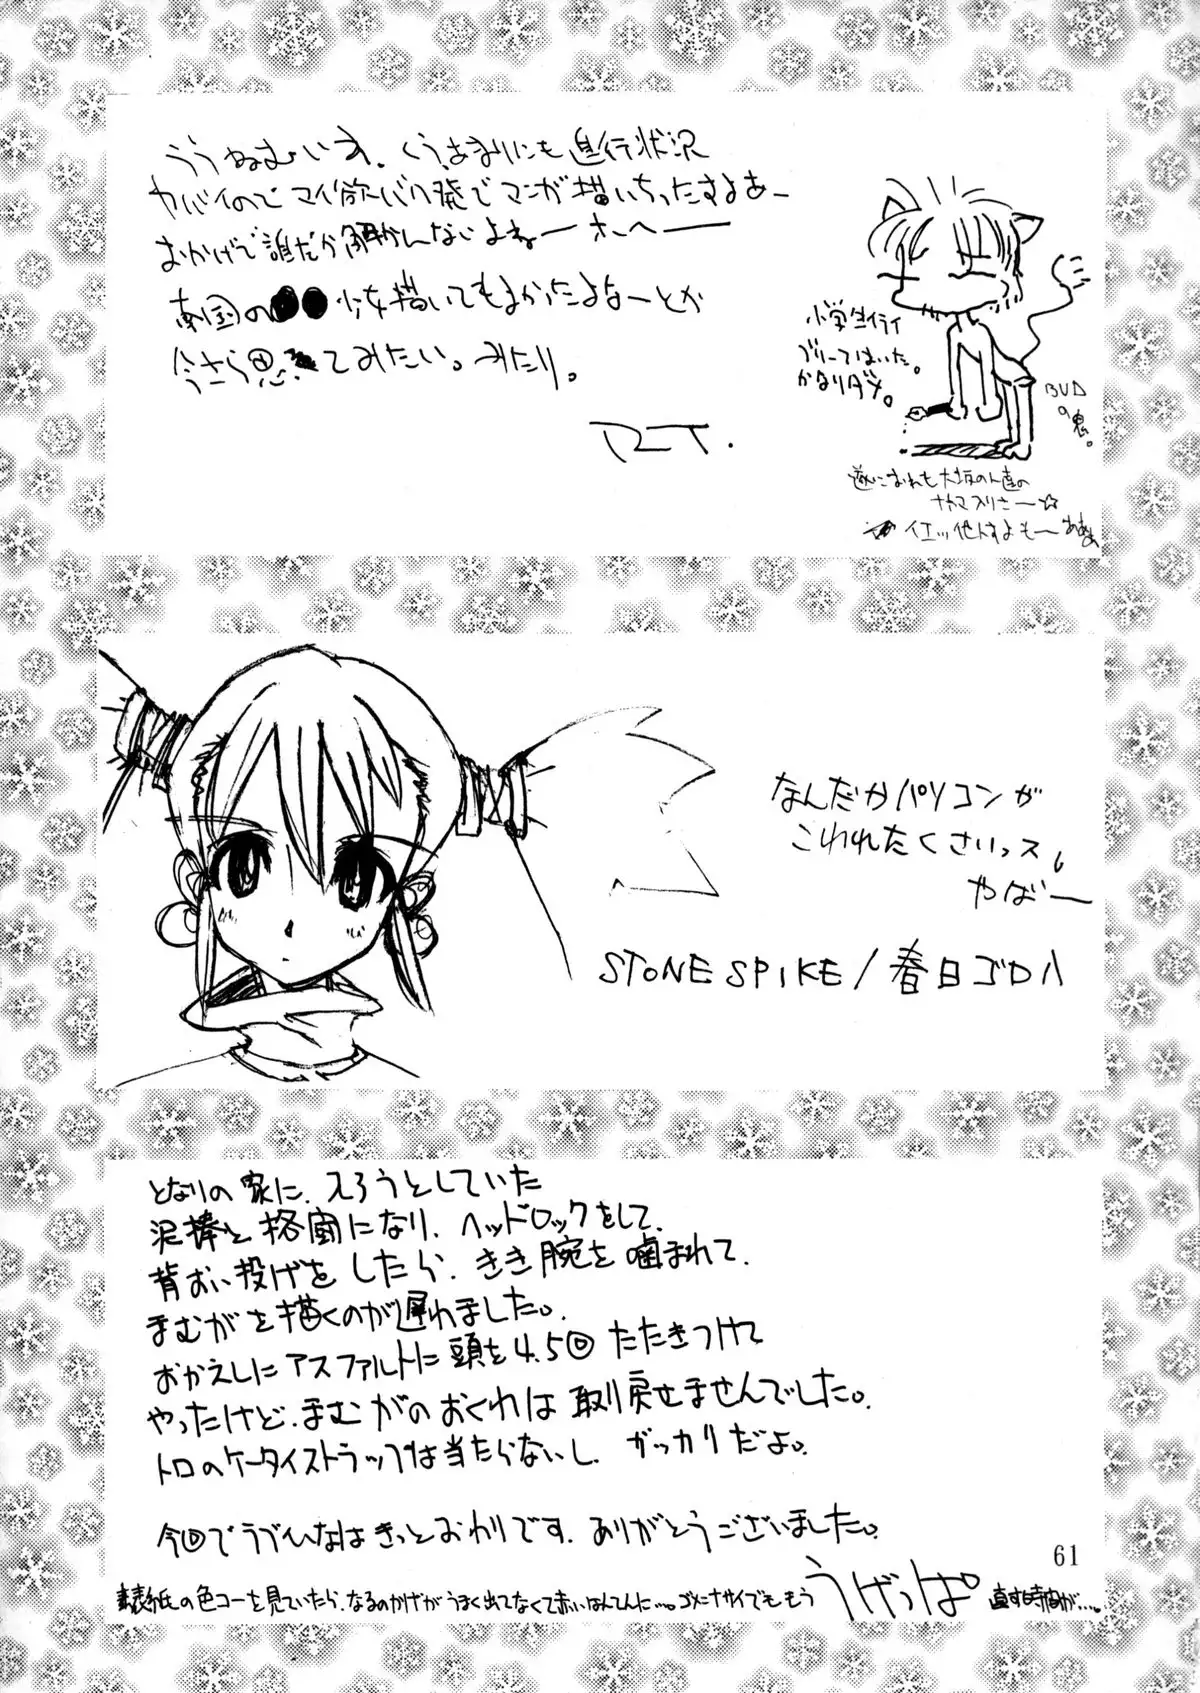 ううねむいす。くうあまりにも進行状況
ヤバイのでマイ欲バク発でマンガ描いちったすよあー
おかげで誰だか解かんないよねーホーヘー
南国の●●少女描いてもよかったよなーとか
今さら思ってみたい。みたり。
小学生イライ
ブリーてはいた。
かなりダメ。
BUD
の鬼。
遂におれも大坂の人達の
ナカマ入りさー☆
イエッ他人すよもーああぁ
なんだかパソコンが
こわれたくさいっス。
やばー
STONE SPIKE/春日ゴロ八
となりの家に、入ろうとしていた
泥棒と格闘になり、ヘッドロックをして、
背おい投げをしたら、きき腕を噛まれて、
まむがを描くのが遅れました。
おかえしにアスファルトに頭を4.5回たたきつけて
やったけど、まむがのおくれは取り戻せませんでした。
トロのケータイストラップは当たらないし、ガッカリだよ。
今回でラブひなはきっとおわりです、ありがとうございました。
61
表紙の色コーを見ていたら、なるのかげがうまく出てなくて赤いはんてんに…。ゴメーナサイでももう 直す時間が…。
うげっぱ